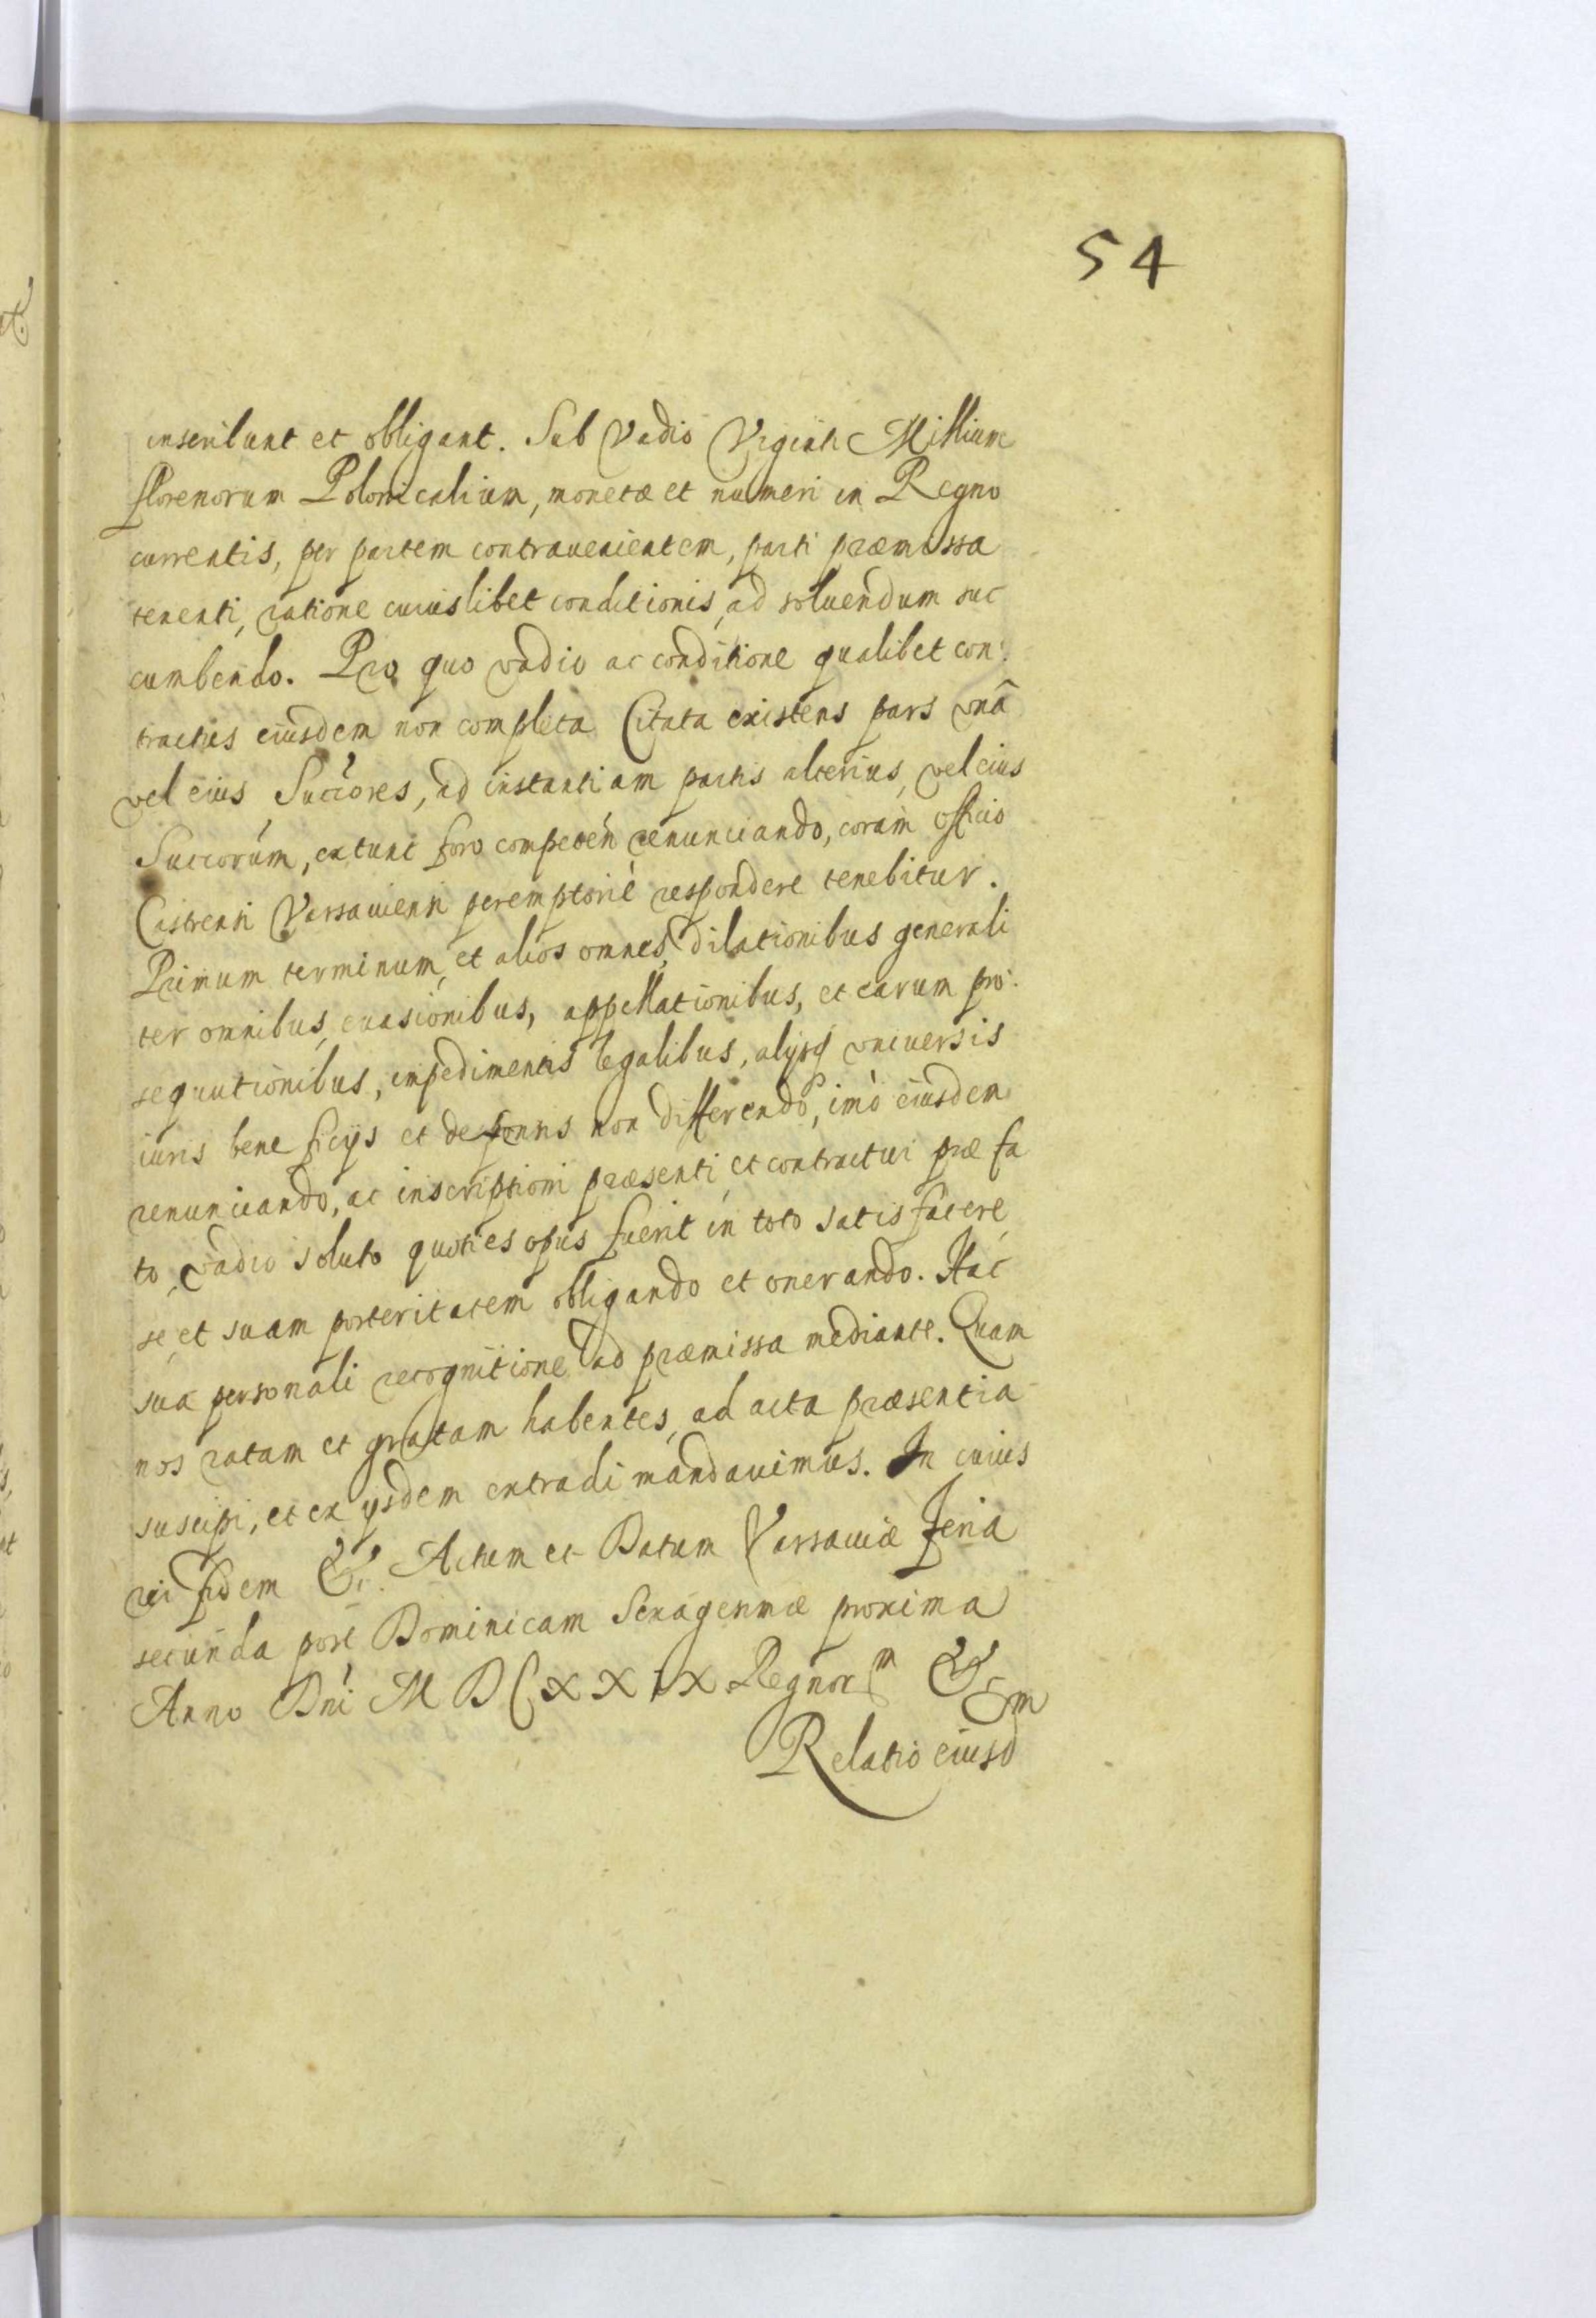 54
inscribunt et obligant. Sub Vadio Viginti Millium
florenorum Polonicalium, monetæ et numeri in Regno
currentis, per partem contravenientem, parti præmissa
tenenti, ratione cuiuslibet conditionis, ad soluendum suc
cumbendo. Pro quo vadio ac conditione qualibet con:
tractus eiusdem non completa Citata existens pars vnâ
vel eius Succores, ad instantiam partis alterius, vel eius
Succorúm, extunc foro competén renunciando, coram officio
Castrensi Varsauiensi peremptoriè respondere tenebitur.
Primum terminum, et alios omnes, dilationibus generali
ter omnibus, euasionibus, appellationibus, et earum pro:
sequutionibus, impedimentis legalibus, alijsq vniuersis
iuris beneficijs et defensis non differendo, imò eiusdem
renunciando, ac inscriptioni præsenti et contractui præfa
to, vadio soluto quoties opus fuerit in toto satisfacere,
se, et suam posteritatem obligando et onerando. Hac
sua personali recognitione ad præmissa mediante. Quam
nos ratam et gratam habentes, ad acta præsentia
suscipi, et ex ijsdem extradi mandauimus. In cuius
rei fidem &c. Actum et Datum Varsauiæ feria
secunda post Dominicam Sexagesimæ proxima
Anno Dni M D C X X I X Regnor m &c
Relatio eiusd m